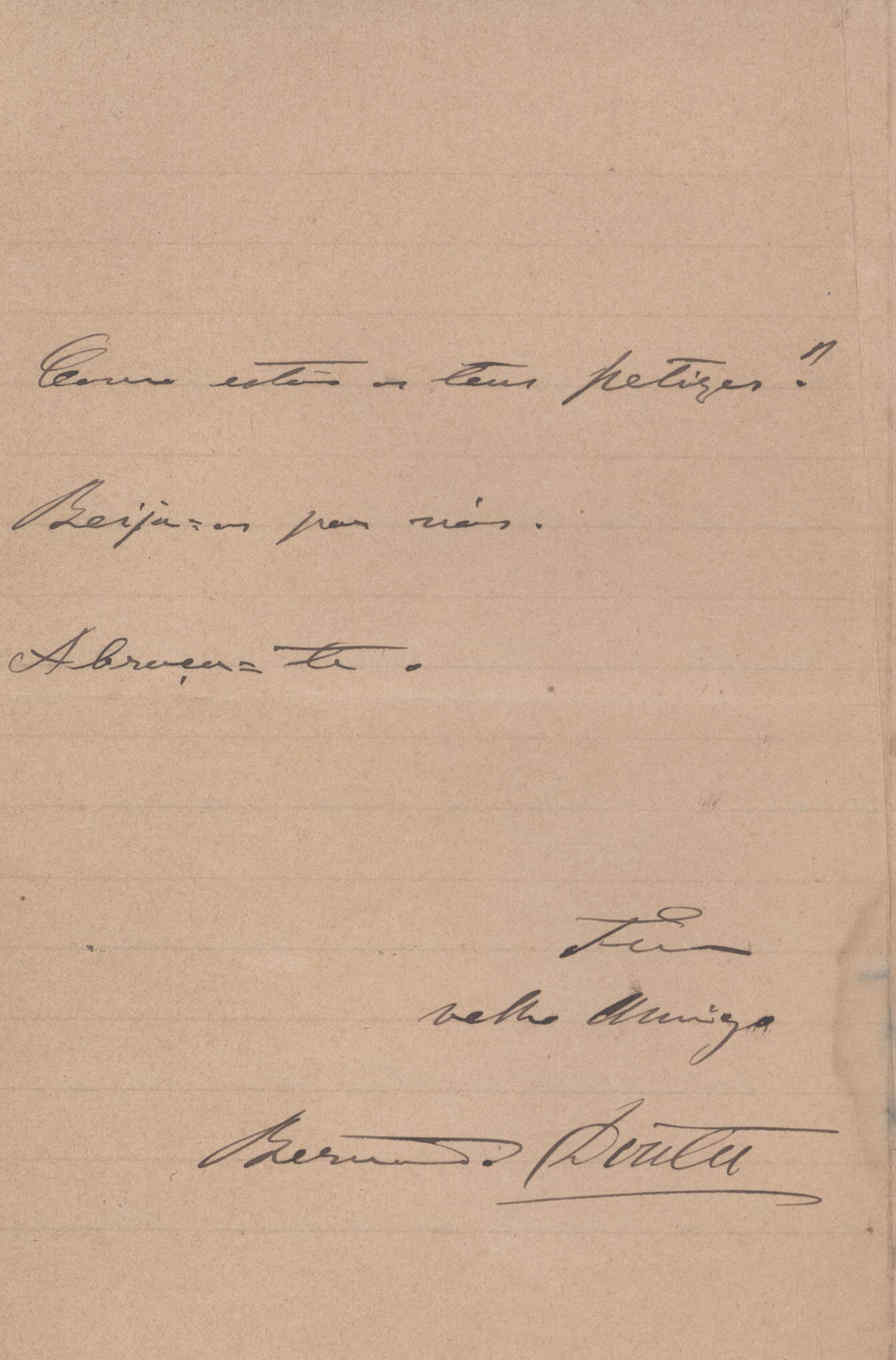 Como estão os teus petizes?
Beija=os por nós.
Abraça=te.
Teu
velho Amigo
Bernardo